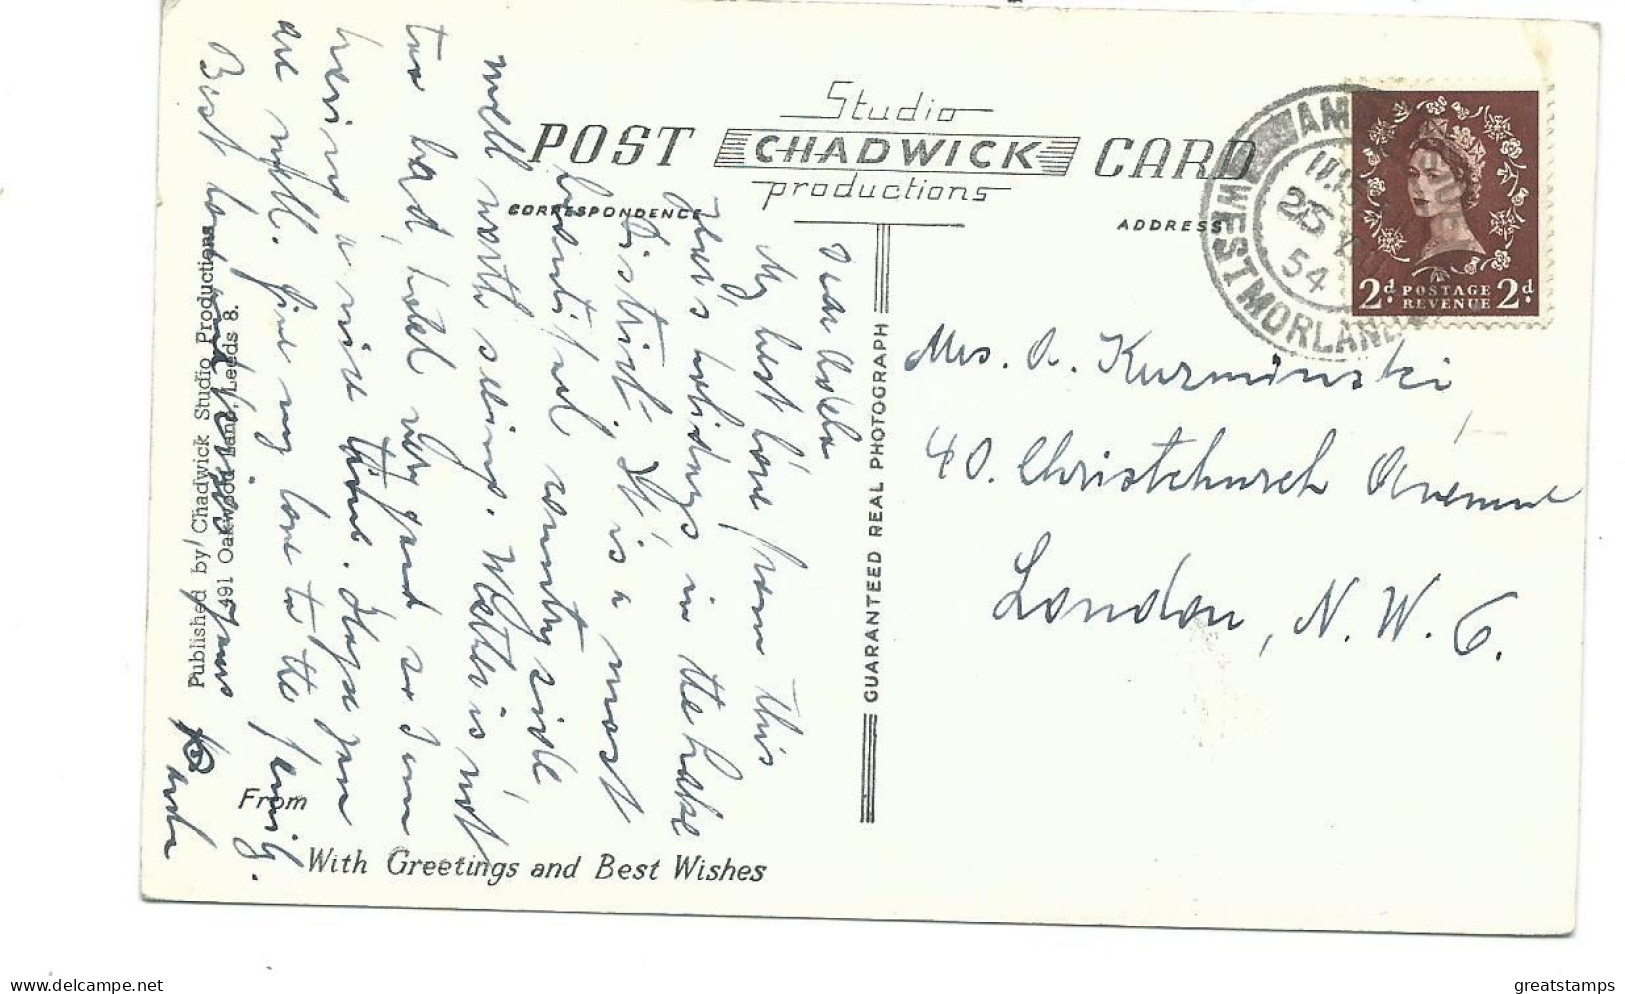 Studio
POST CHADWICK CARD
productions
CORRESPONDENCE
ADDRESS
Dear Adela
My best love from this
year's holidays in the Lake
District. It is a most
beautiful country side
well worth seeing. Wether is not
too bad, hotel very good so I am
having a nice time. Hope you
are well. Give my love to the family.
Best love and kisses yours
Wanda
GUARANTEED REAL PHOTOGRAPH
Published by Chadwick Studio Productions
491 Oakwood Lane, Leeds 8.
From
With Greetings and Best Wishes
AMBLESIDE
WESTMORLAND
25
54
2d POSTAGE REVENUE 2d
Mrs. A. Kurzminski
40. Christchurch Avenue
London, N.W.6.
greatstamps
delcampe.net